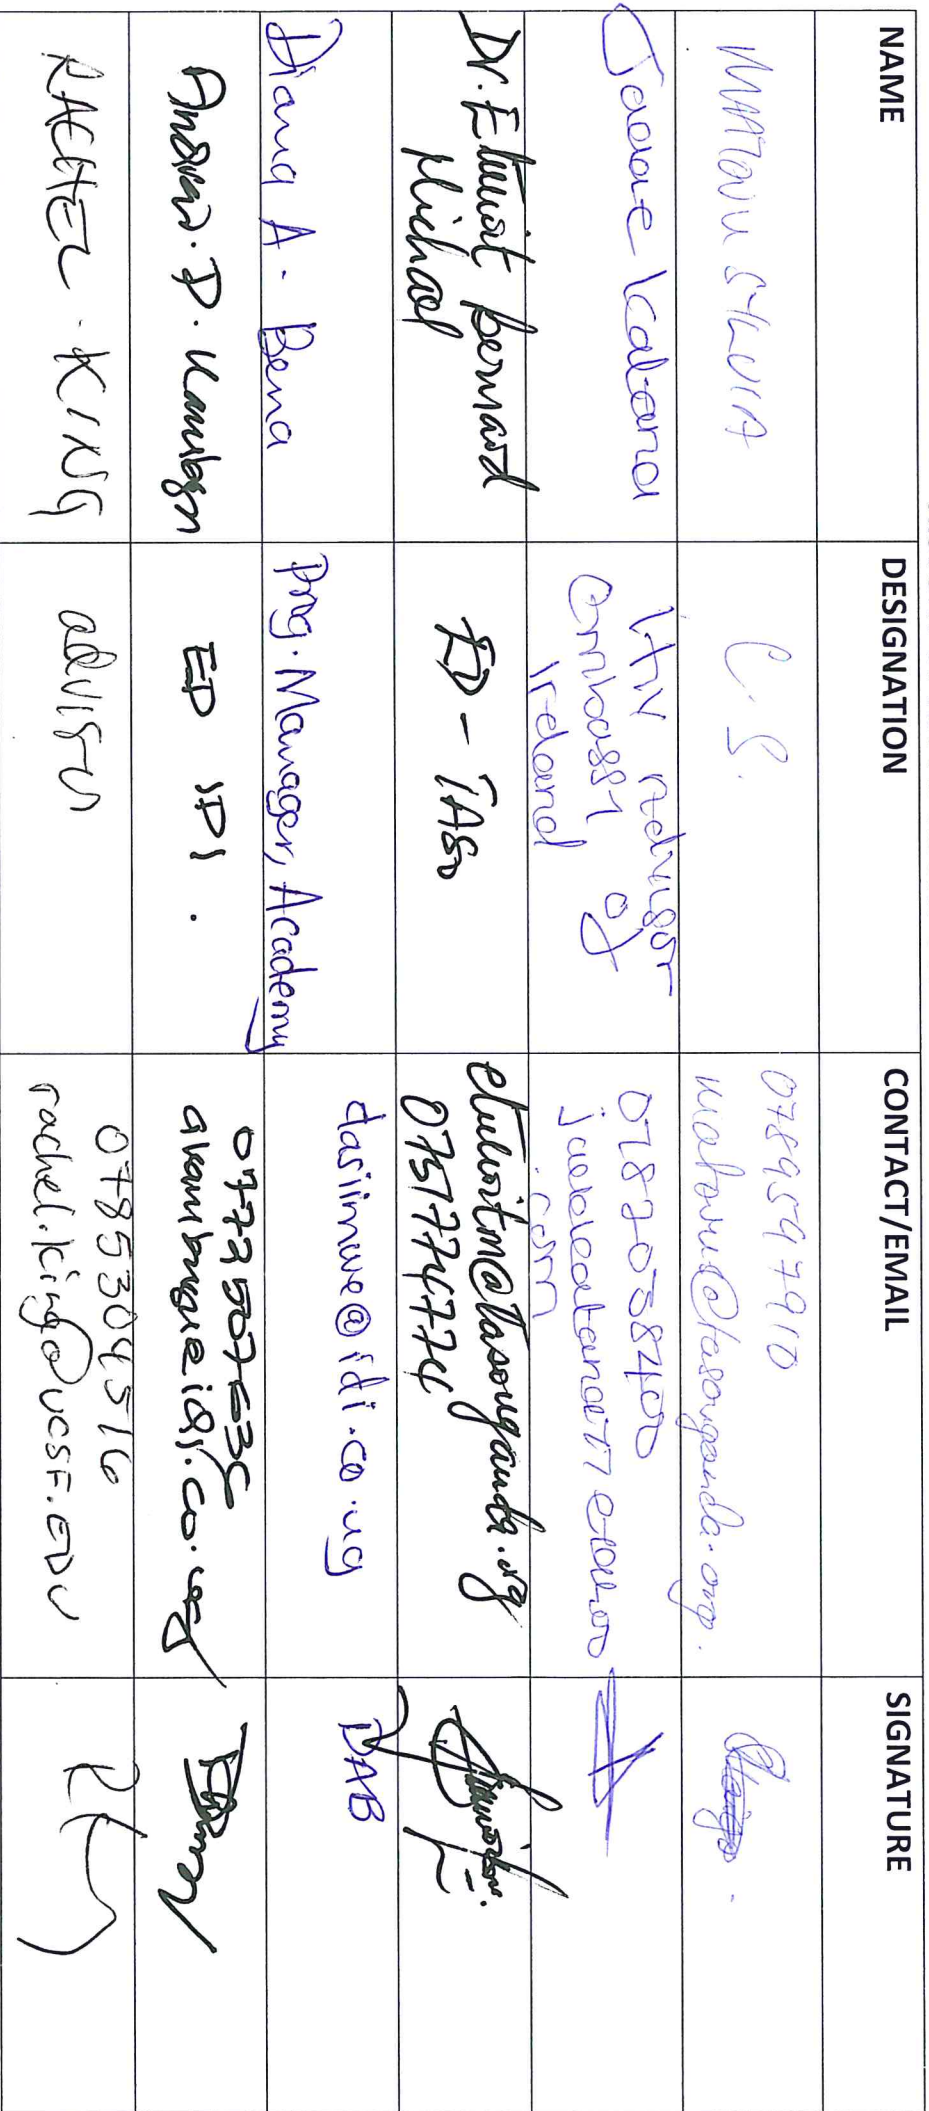 NAME DESIGNATION CONTACT/EMAIL SIGNATURE
MATOVU SYLVIA C.S. 0789597910
matovu@tasouganda.org.
HIV Advisor
Embassy of
Ireland
0782038400
.com
Dr. Etukoit Bernard
Michael
ED - TASO
etukoitm@tasouganda.org
0757774774
Diana A. Bena Prog. Manager, Academy dasiimwe@idi.co.ug DAB
Andrew. D. Kambugu ED IDI. 0772507636
RACHEL - KING advisor 0785304516
rachel.king@ucsf.EDU
RK